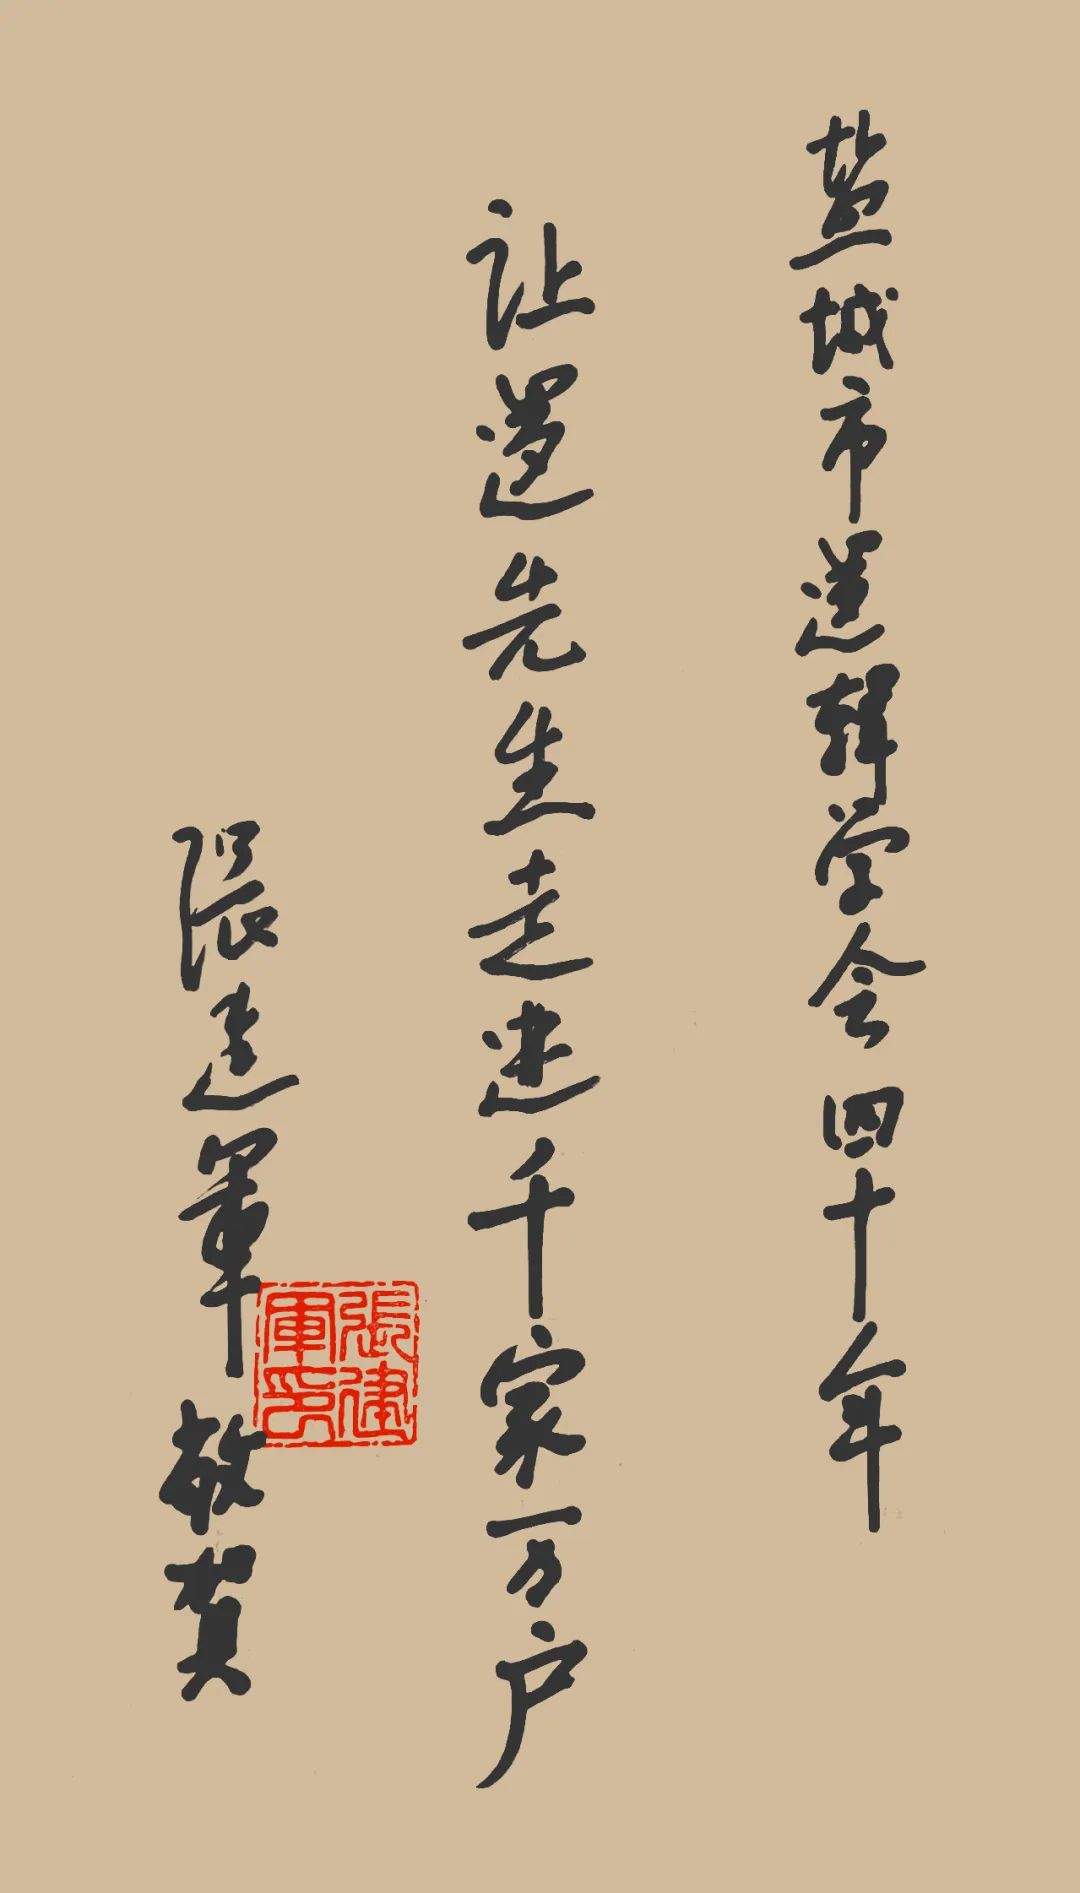 盐城市逻辑学会四十年
让逻先生走进千家万户
张建军 敬贺
張建軍印